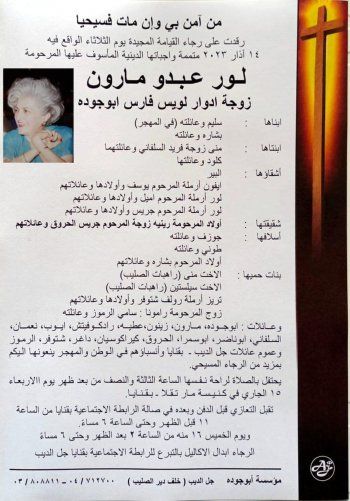 من آمن بي وان مات فسيحيا
رقدت على رجاء القيامة المجيدة يوم الثلاثاء الواقع فيه
١٤ آذار ٢٠٢٣ متممة واجباتها الدينية المأسوف عليها المرحومة
لور عبدو مارون
زوجة ادوار لويس فارس ابوجوده
ابناها : سليم وعائلته (في المهجر)
بشاره وعائلته
ابنتاها : منى زوجة فريد السلفاني وعائلتهما
كلود وعائلتها
أشقاؤها : البير
ايفون أرملة المرحوم يوسف وأولادها وعائلاتهم
لور أرملة المرحوم اميل وأولادها وعائلاتهم
لور أرملة المرحوم جريس وأولادها وعائلاتهم
شقيقتها : أولاد المرحومة رينيه زوجة المرحوم جريس الحروق وعائلاتهم
أسلافها : جوزف وعائلته
طوني وعائلته
أولاد المرحوم بشاره وعائلاتهم
بنات حميها : الاخت منى (راهبات الصليب)
الاخت سيلستين (راهبات الصليب)
تريز أرملة رولف شتوفر وأولادها وعائلاتهم
زوج المرحومة رامونا : سامي الرموز وعائلته
وعائلات : ابوجوده، مارون، زينون، عطيه، رادكوفيتش، ايوب، نعمان،
السلفاني، ابوناضر، ابوسمرا، الحروق، كيراكوسيان، داغر، شتوفر، الرموز
وعموم عائلات جل الديب - بقنايا وأنسباؤهم في الوطن والمهجر ينعونها اليكم
بمزيد من الرجاء المسيحي.
يحتفل بالصلاة لراحة نفسها الساعة الثالثة والنصف من بعد ظهر يوم الاربعاء
١٥ الجاري في كنيسة مار تقلا - بقنايا.
تقبل التعازي قبل الدفن وبعده في صالة الرابطة الاجتماعية بقنايا من الساعة
١١ قبل الظهر وحتى الساعة ٦ مساءً.
ويوم الخميس ١٦ منه من الساعة ٢ بعد الظهر وحتى ٦ مساءً
الرجاء ابدال الاكاليل بالتبرع للرابطة الاجتماعية بقنايا جل الديب
مؤسسة ابوجوده جل الديب ( خلف دير الصليب ) ٠٤/٧١٢٧٠٠ - ٠٣/٨٠٨٨١١